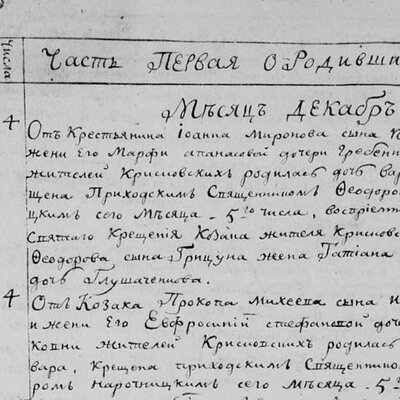 Числа
Часть Первая о Родивши
Мѣсяцъ Декабр
4
Отъ Крестьянина Iоанна Миронова сына
жени Его Марфи Апанасовой дочери Гребенн
жителей Крисновскихъ родилась дочъ вар
щена Приходскимъ Священникомъ Ѳеодоро
цкимъ сего Мѣсяца 5го числа, воспрiем
Святаго Крещенiя Козака жителя Крисновс
Ѳеодорова сына Грицуна жена Татiана
дочъ Глушаченкова.
4
Отъ Козака Прокопа Михеева сына
и жени Его Евфросинiй стефановой доче
ковни жителей Крисновскихъ родилась
вара, крещена приходскимъ Священнико
ромъ Нарочницкимъ сего Мѣсяца. 5го